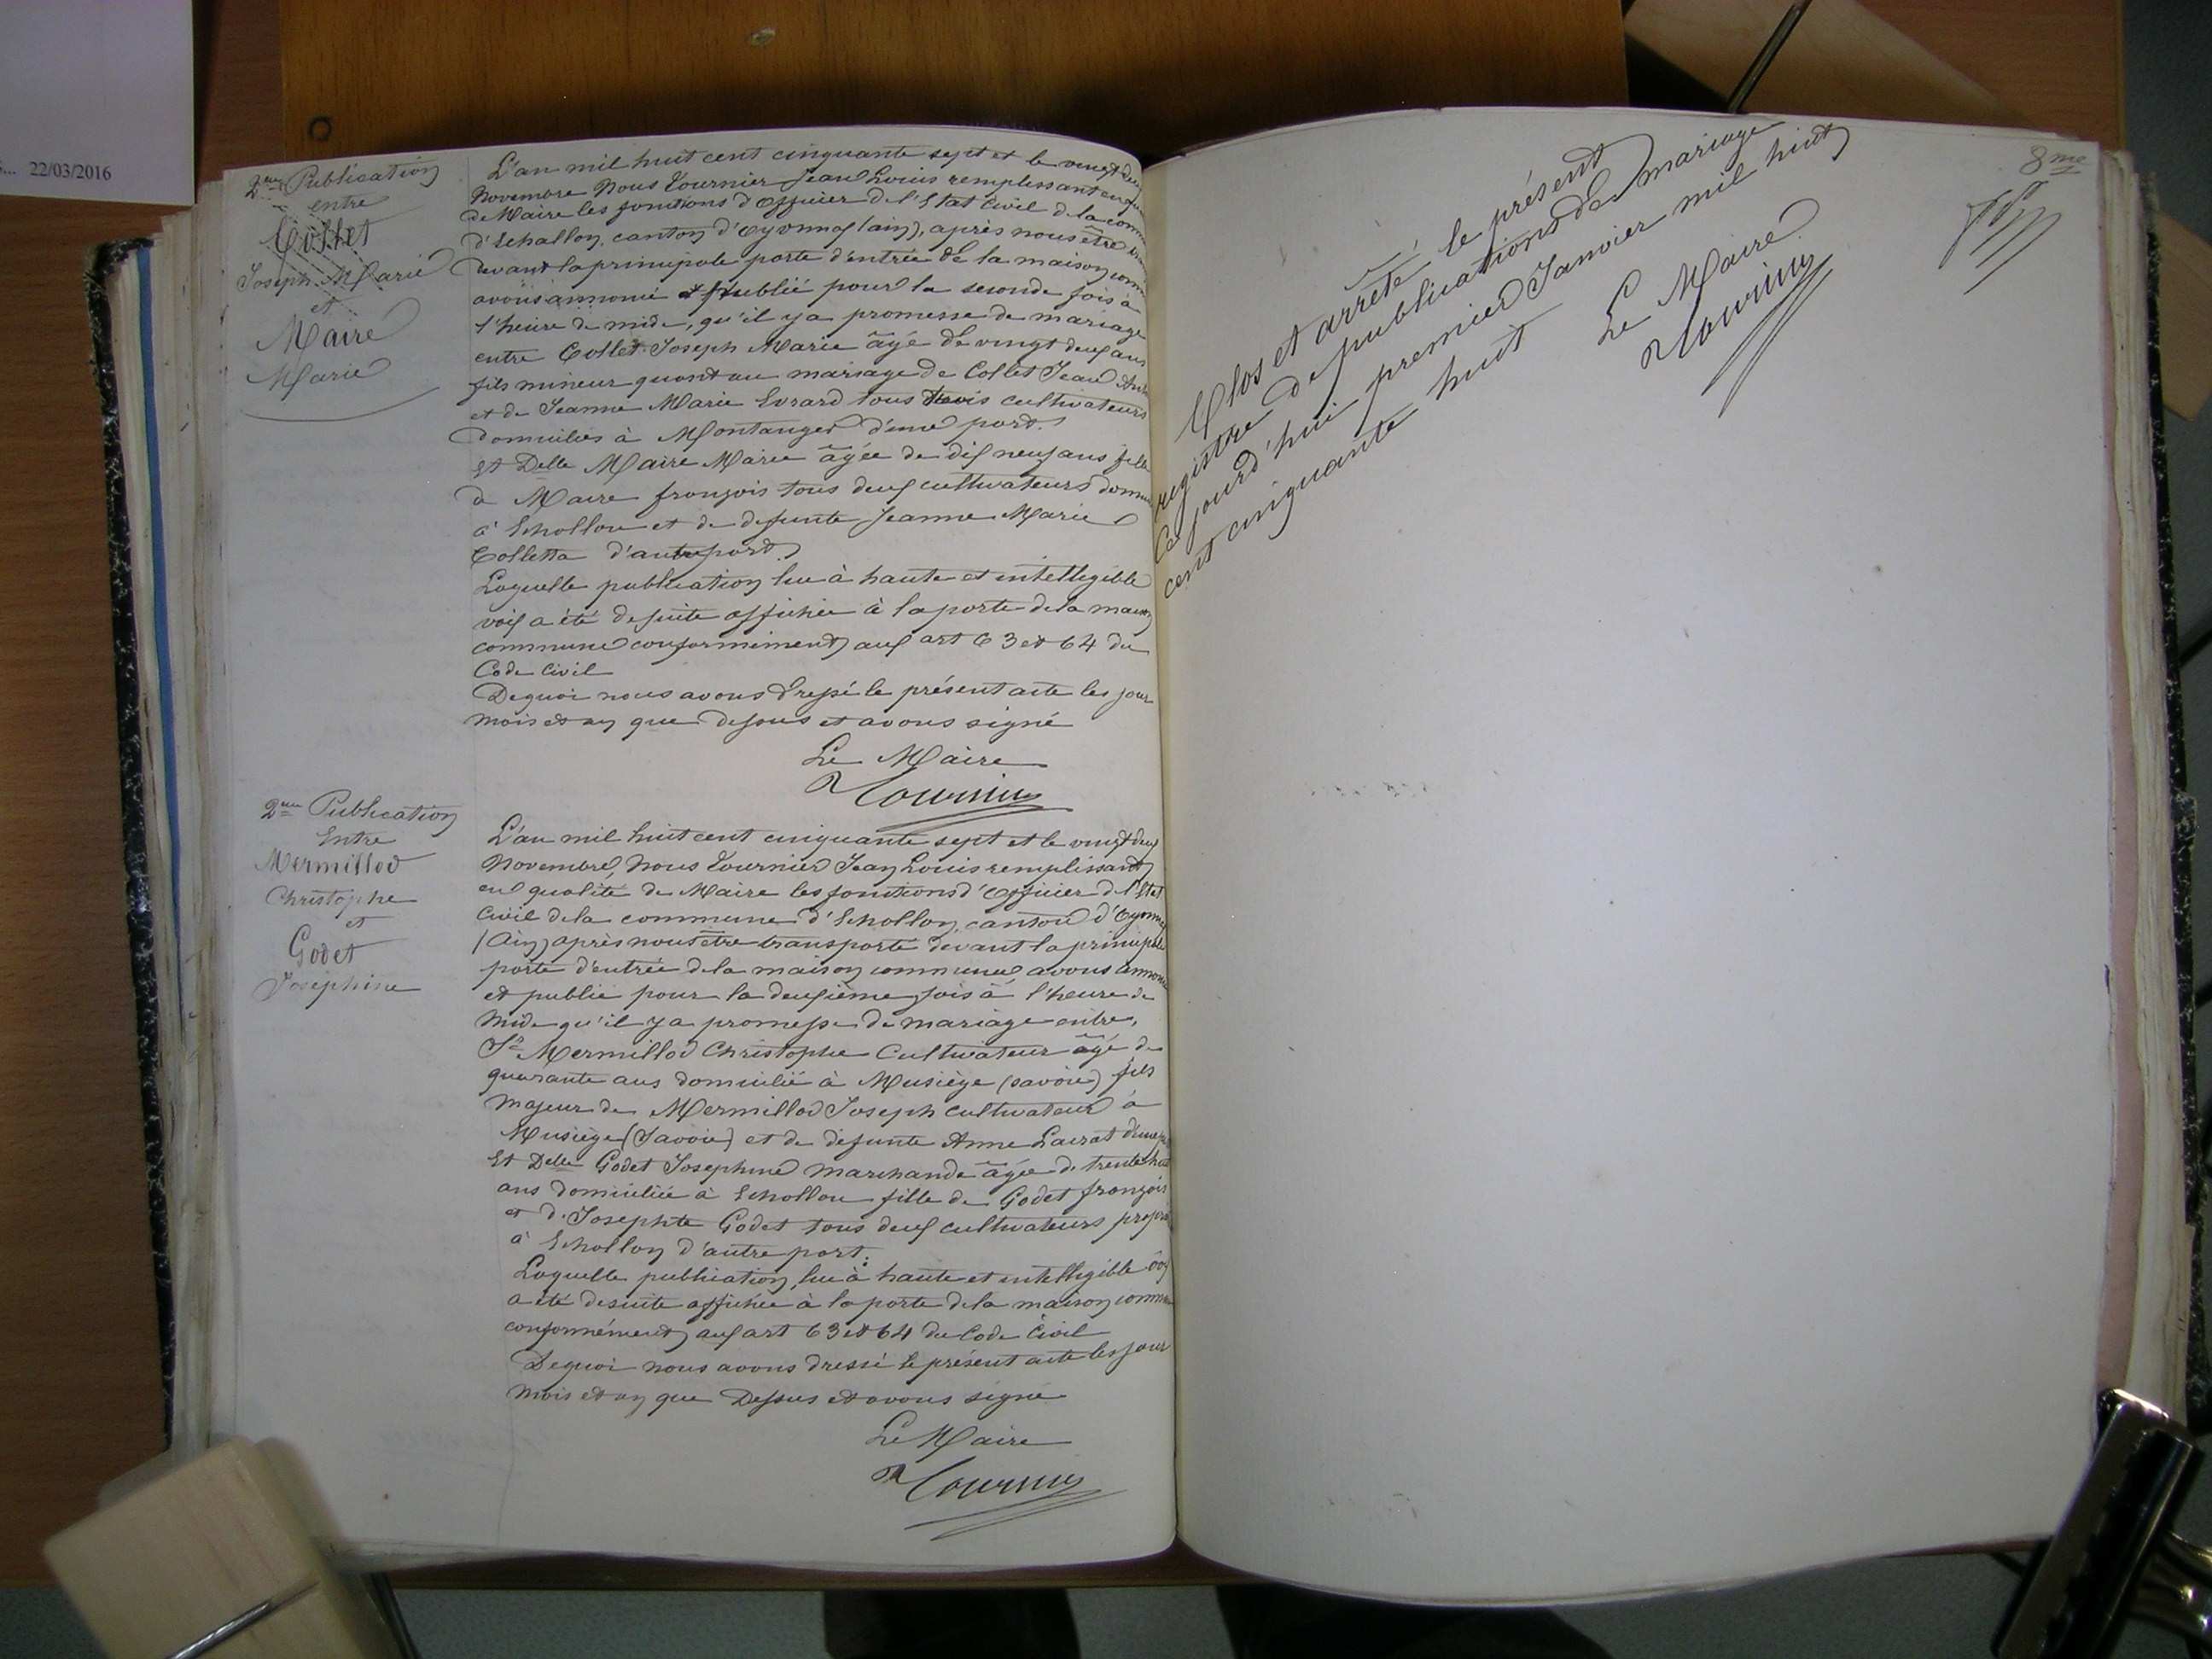 ... 22/03/2016
2me Publication
entre
Collet
Joseph Marie
et
Maire
Marie
L'an mil huit cent cinquante sept et le vingt deux
Novembre Nous Tournier Jean Louis remplissant en qu
de Maire les fonctions d'officier de l'Etat Civil de la comm
d'Echallon, canton d'Oyonnax (ain), après nous être
devant la principale porte d'entrée de la maison comm
avons annoncé et publié pour la seconde fois à
l'heure de midi, qu'il y a promesse de mariage
entre Collet Joseph Marie âgé de vingt deux ans
fils mineur quant au mariage de Collet Jean
et de Jeanne Marie Evrard tous trois cultivateurs
domiciliés à Montanger d'une part.
et Delle Maire Marie âgée de dix neuf ans fille
de Maire françois tous deux cultivateurs domici
à Echallon et de defunte Jeanne Marie
Colletta d'autre part.
Laquelle publication lue à haute et intellegible
voix a été de suite affichée à la porte de la maison
commune conformément aux art 63 et 64 du
Code Civil
De quoi nous avons dressé le présent acte les jour
mois et an que dessus et avons signé
Le Maire
Tournier
2me Publication
Entre
Mermillod
Christophe
et
Godet
Joséphine
L'an mil huit cent cinquante sept et le vingt deux
Novembre, Nous Tournier Jean Louis remplissant
en qualité de Maire les fonctions d'officier de l'Etat
Civil de la commune d'Echallon, canton d'Oyonna
(Ain) après nous être transporté devant la principale
porte d'entrée de la maison commune avons annon
et publié pour la deuxième fois à l'heure de
midi qu'il y a promesse de mariage entre,
Sr Mermillod Christophe Cultivateur âgé de
quarante ans domicilié à Musiège (savoie) fils
majeur de Mermillod Joseph cultivateur à
Musiège (Savoie) et de defunte Anne Lairat d'une
Et Delle Godet Josephine marchande âgée de trente huit
ans domiciliée à Echallon fille de Godet françois
et de Josephte Godet tous deux cultivateurs propri
à Echallon d'autre part.
Laquelle publication, lue à haute et intellegible voix
a été desuite affichée à la porte de la maison commu
conformément aux art 63 et 64 du Code Civil
De quoi nous avons dressé le présent acte les jour
mois et an que Dessus et avons signé
Le Maire
Tournier
8me
Clos et arrêté le présent
registre de publications de mariage
Ce jourd'hui premier Janvier mil huit
cent cinquante huit
Le Maire
Tournier